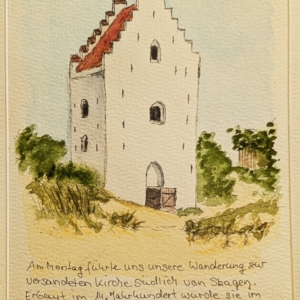 Am Montag führte uns unsere Wanderung zur
versandeten Kirche südlich von Skagen.
Erbaut im 14. Jahrhundert wurde sie im